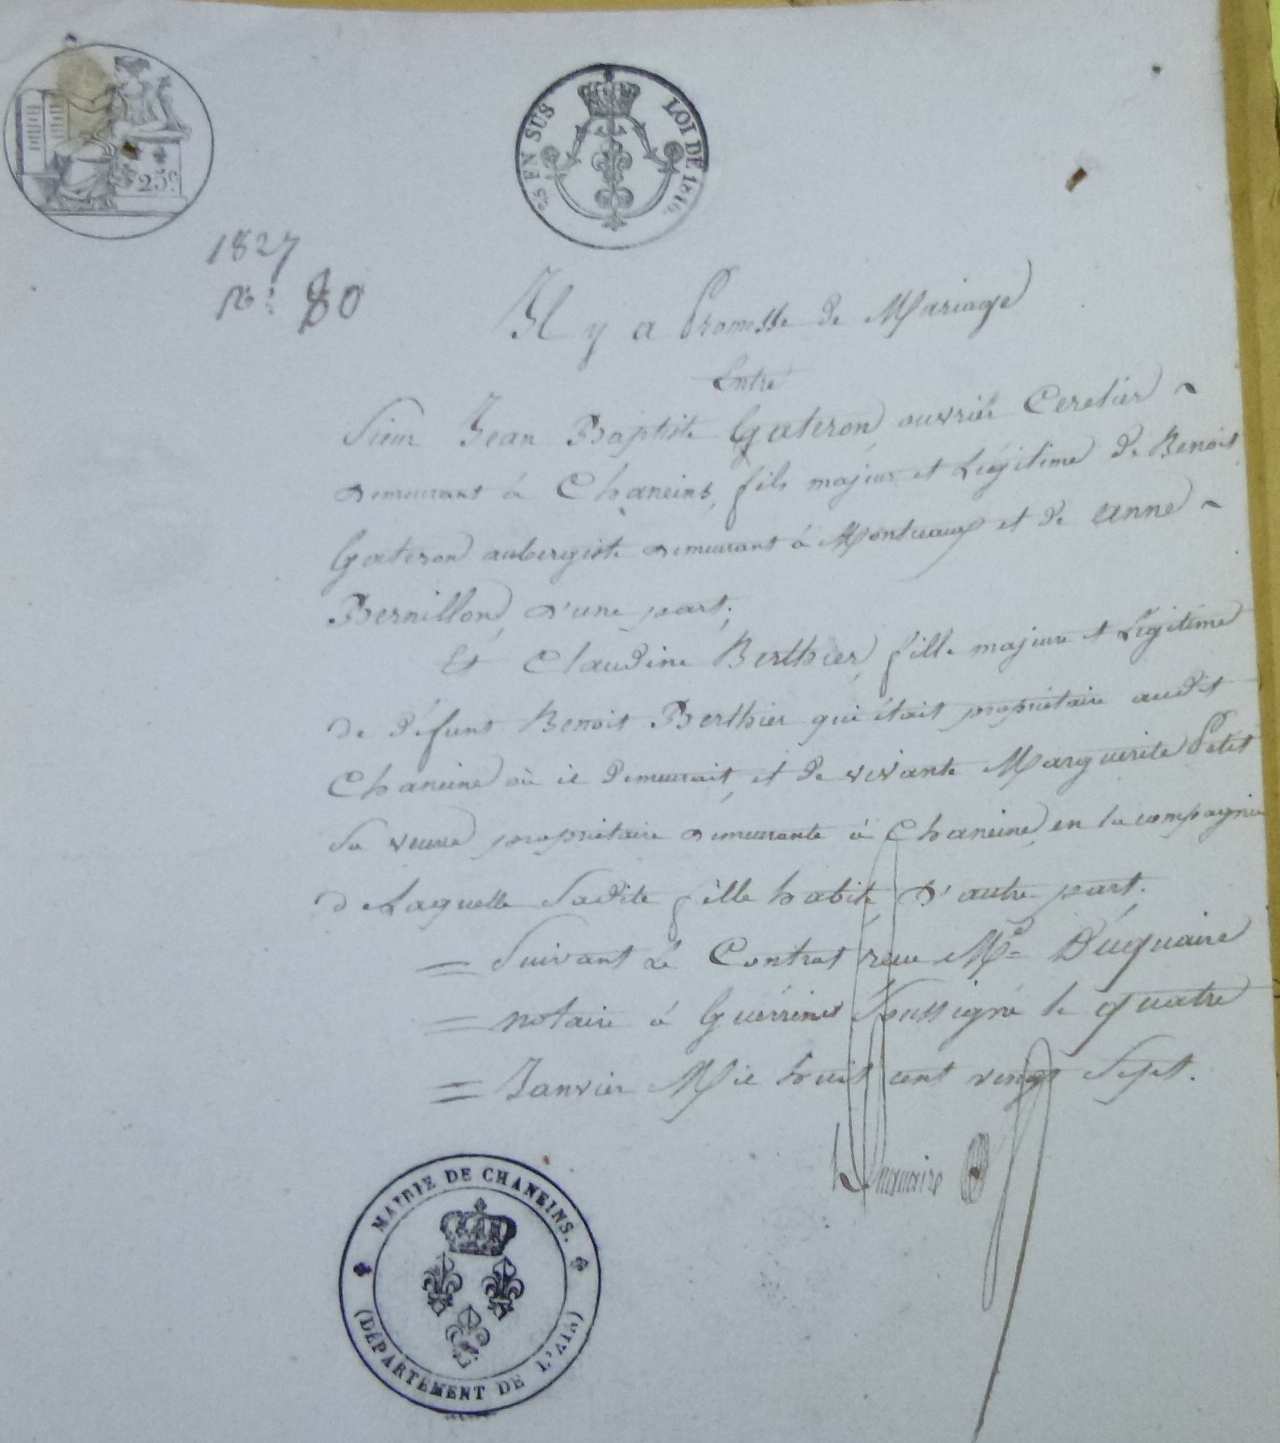 25 EN SUS LOI DE 1816.
25c.
1827
No. 80
Il y a Promesse de Mariage
Entre
Sieur Jean Baptiste Gateron ouvrier Cerclier ~
demeurant à Chaneins, fils majeur et Légitime de Benoit
Gateron aubergiste demeurant à Montceaux et de anne ~
Bernillon, d'une part;
Et Claudine Berthier, fille majeure et Légitime
de défunt Benoit Berthier qui était propriétaire audit
Chaneins où il demeurait, et de vivante Marguerite Petit
Sa veuve propriétaire demeurante à Chaneins, en la compagnie
de Laquelle Sadite fille habite, d'autre part.
= Suivant Le Contrat reçu Me= Duquaire
= notaire à Guérreins Soussigné le quatre
= Janvier Mil huit cent vingt Sept.
Duquaire
MAIRIE DE CHANEINS.
(DÉPARTEMENT DE L'AIN)